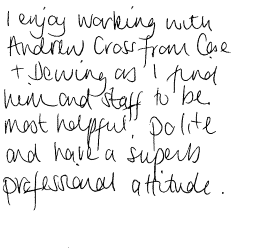 I enjoy working with
Andrew Cross from Case
+ Dewing as I find
him and staff to be
most helpful, polite
and have a superb
professional attitude.